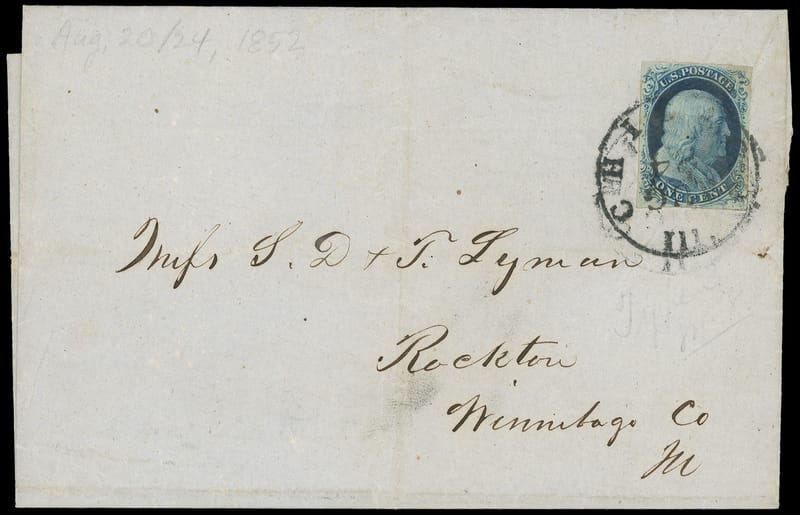 Aug. 20/24, 1852
U.S. POSTAGE
ONE CENT
Ill.
Messrs S. D + T. Lyman
Rockton
Winnebago Co
Ill